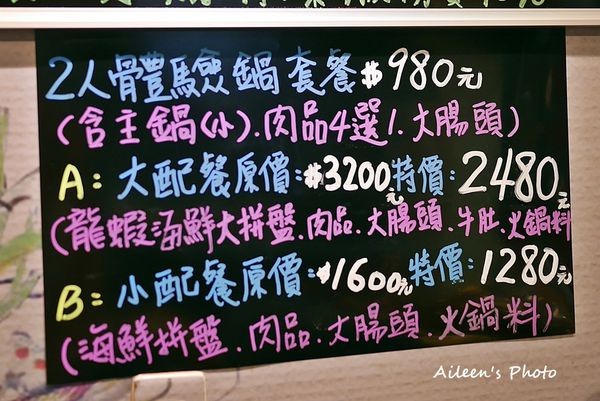 2人骨豊驗鍋套餐$980元
(含主鍋(小).肉品4選1.大腸頭)
A:大配餐原價:$3200元特價:2480元
(龍蝦海鮮大拼盤.肉品.大腸頭.牛肚.火鍋料
B:小配餐原價:$1600元特價:1280元
(海鮮拼盤.肉品.大腸頭.火鍋料)
Aileen's Photo